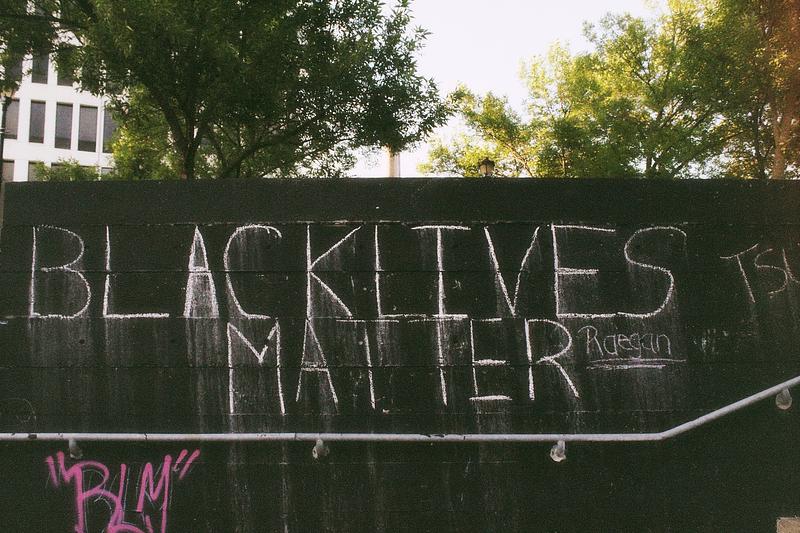 BLACK LIVES
MATTER
Raegan
"BLM"